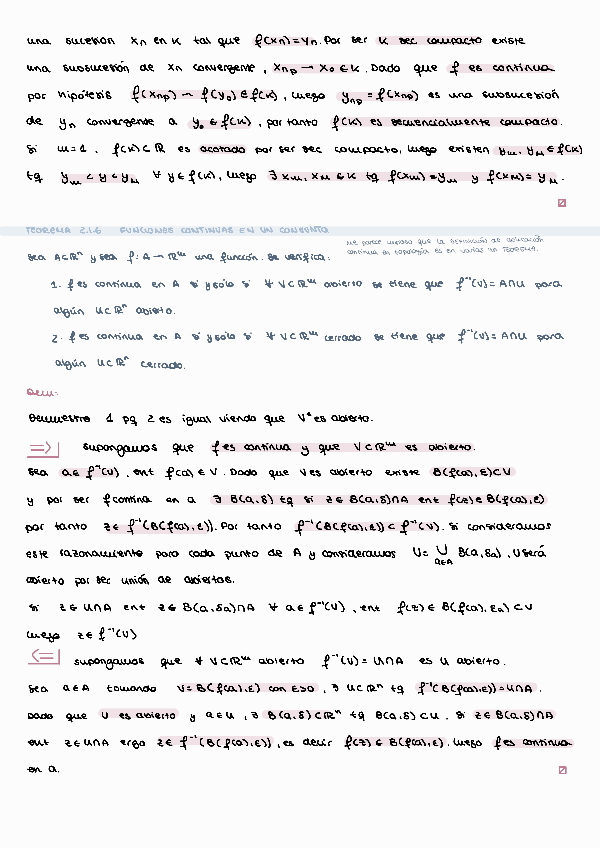 una sucesión xₙ en K tal que f(xₙ)=yₙ. Por ser K sec compacto existe
una subsucesión de xₙ convergente, xₙₚ → x₀ ∈ K. Dado que f es continua
por hipótesis f(xₙₚ) → f(y₀) ∈ f(K), luego yₙₚ = f(xₙₚ) es una subsucesión
de yₙ convergente a y₀ ∈ f(K), por tanto f(K) es secuencialmente compacto.
Si m=1, f(K)⊂ℝ es acotado por ser sec compacto, luego existen yₘ, y_M ∈ f(K)
tq yₘ ≤ y ≤ y_M ∀ y ∈ f(K), luego ∃ xₘ, x_M ∈ K tq f(xₘ)=yₘ y f(x_M) = y_M.
TEOREMA 2.1.6 FUNCIONES CONTINUAS EN UN CONJUNTO
Me parece curioso que la definición de aplicación
continua en topología es en varias un TEOREMA.
Sea A⊂ℝⁿ y sea f: A → ℝᵐ una función. Se verifica:
1. f es continua en A si y sólo si ∀ V⊂ℝᵐ abierto se tiene que f⁻¹(V) = A∩U para
algún U⊂ℝⁿ abierto.
2. f es continua en A si y sólo si ∀ V⊂ℝᵐ cerrado se tiene que f⁻¹(V) = A∩U para
algún U⊂ℝⁿ cerrado.
Dem:
Demuestro 1 pq 2 es igual viendo que Vᶜ es abierto.
⇒ Supongamos que f es continua y que V⊂ℝᵐ es abierto.
Sea a ∈ f⁻¹(V), ent f(a) ∈ V. Dado que V es abierto existe B(f(a), ε)⊂V
y por ser f continua en a ∃ B(a,δ) tq si z ∈ B(a,δ)∩A ent f(z) ∈ B(f(a),ε)
por tanto z ∈ f⁻¹(B(f(a),ε)). Por tanto f⁻¹(B(f(a),ε)) ⊂ f⁻¹(V). Si consideramos
este razonamiento para cada punto de A y consideramos U = ∪ₐ∈A B(a,δₐ), U será
abierto por ser unión de abiertos.
Si z ∈ U∩A ent z ∈ B(a,δₐ)∩A ∀ a ∈ f⁻¹(V), ent f(z) ∈ B(f(a),εₐ) ⊂ V
luego z ∈ f⁻¹(V)
⇐ Supongamos que ∀ V⊂ℝᵐ abierto f⁻¹(V) = U∩A es U abierto.
Sea a ∈ A tomando V = B(f(a),ε) con ε>0, ∃ U⊂ℝⁿ tq f⁻¹(B(f(a),ε)) = U∩A.
Dado que U es abierto y a ∈ U, ∃ B(a,δ)⊂ℝⁿ tq B(a,δ)⊂U. Si z ∈ B(a,δ)∩A
ent z ∈ U∩A ergo z ∈ f⁻¹(B(f(a),ε)), es decir f(z) ∈ B(f(a),ε). Luego f es continua
en a.